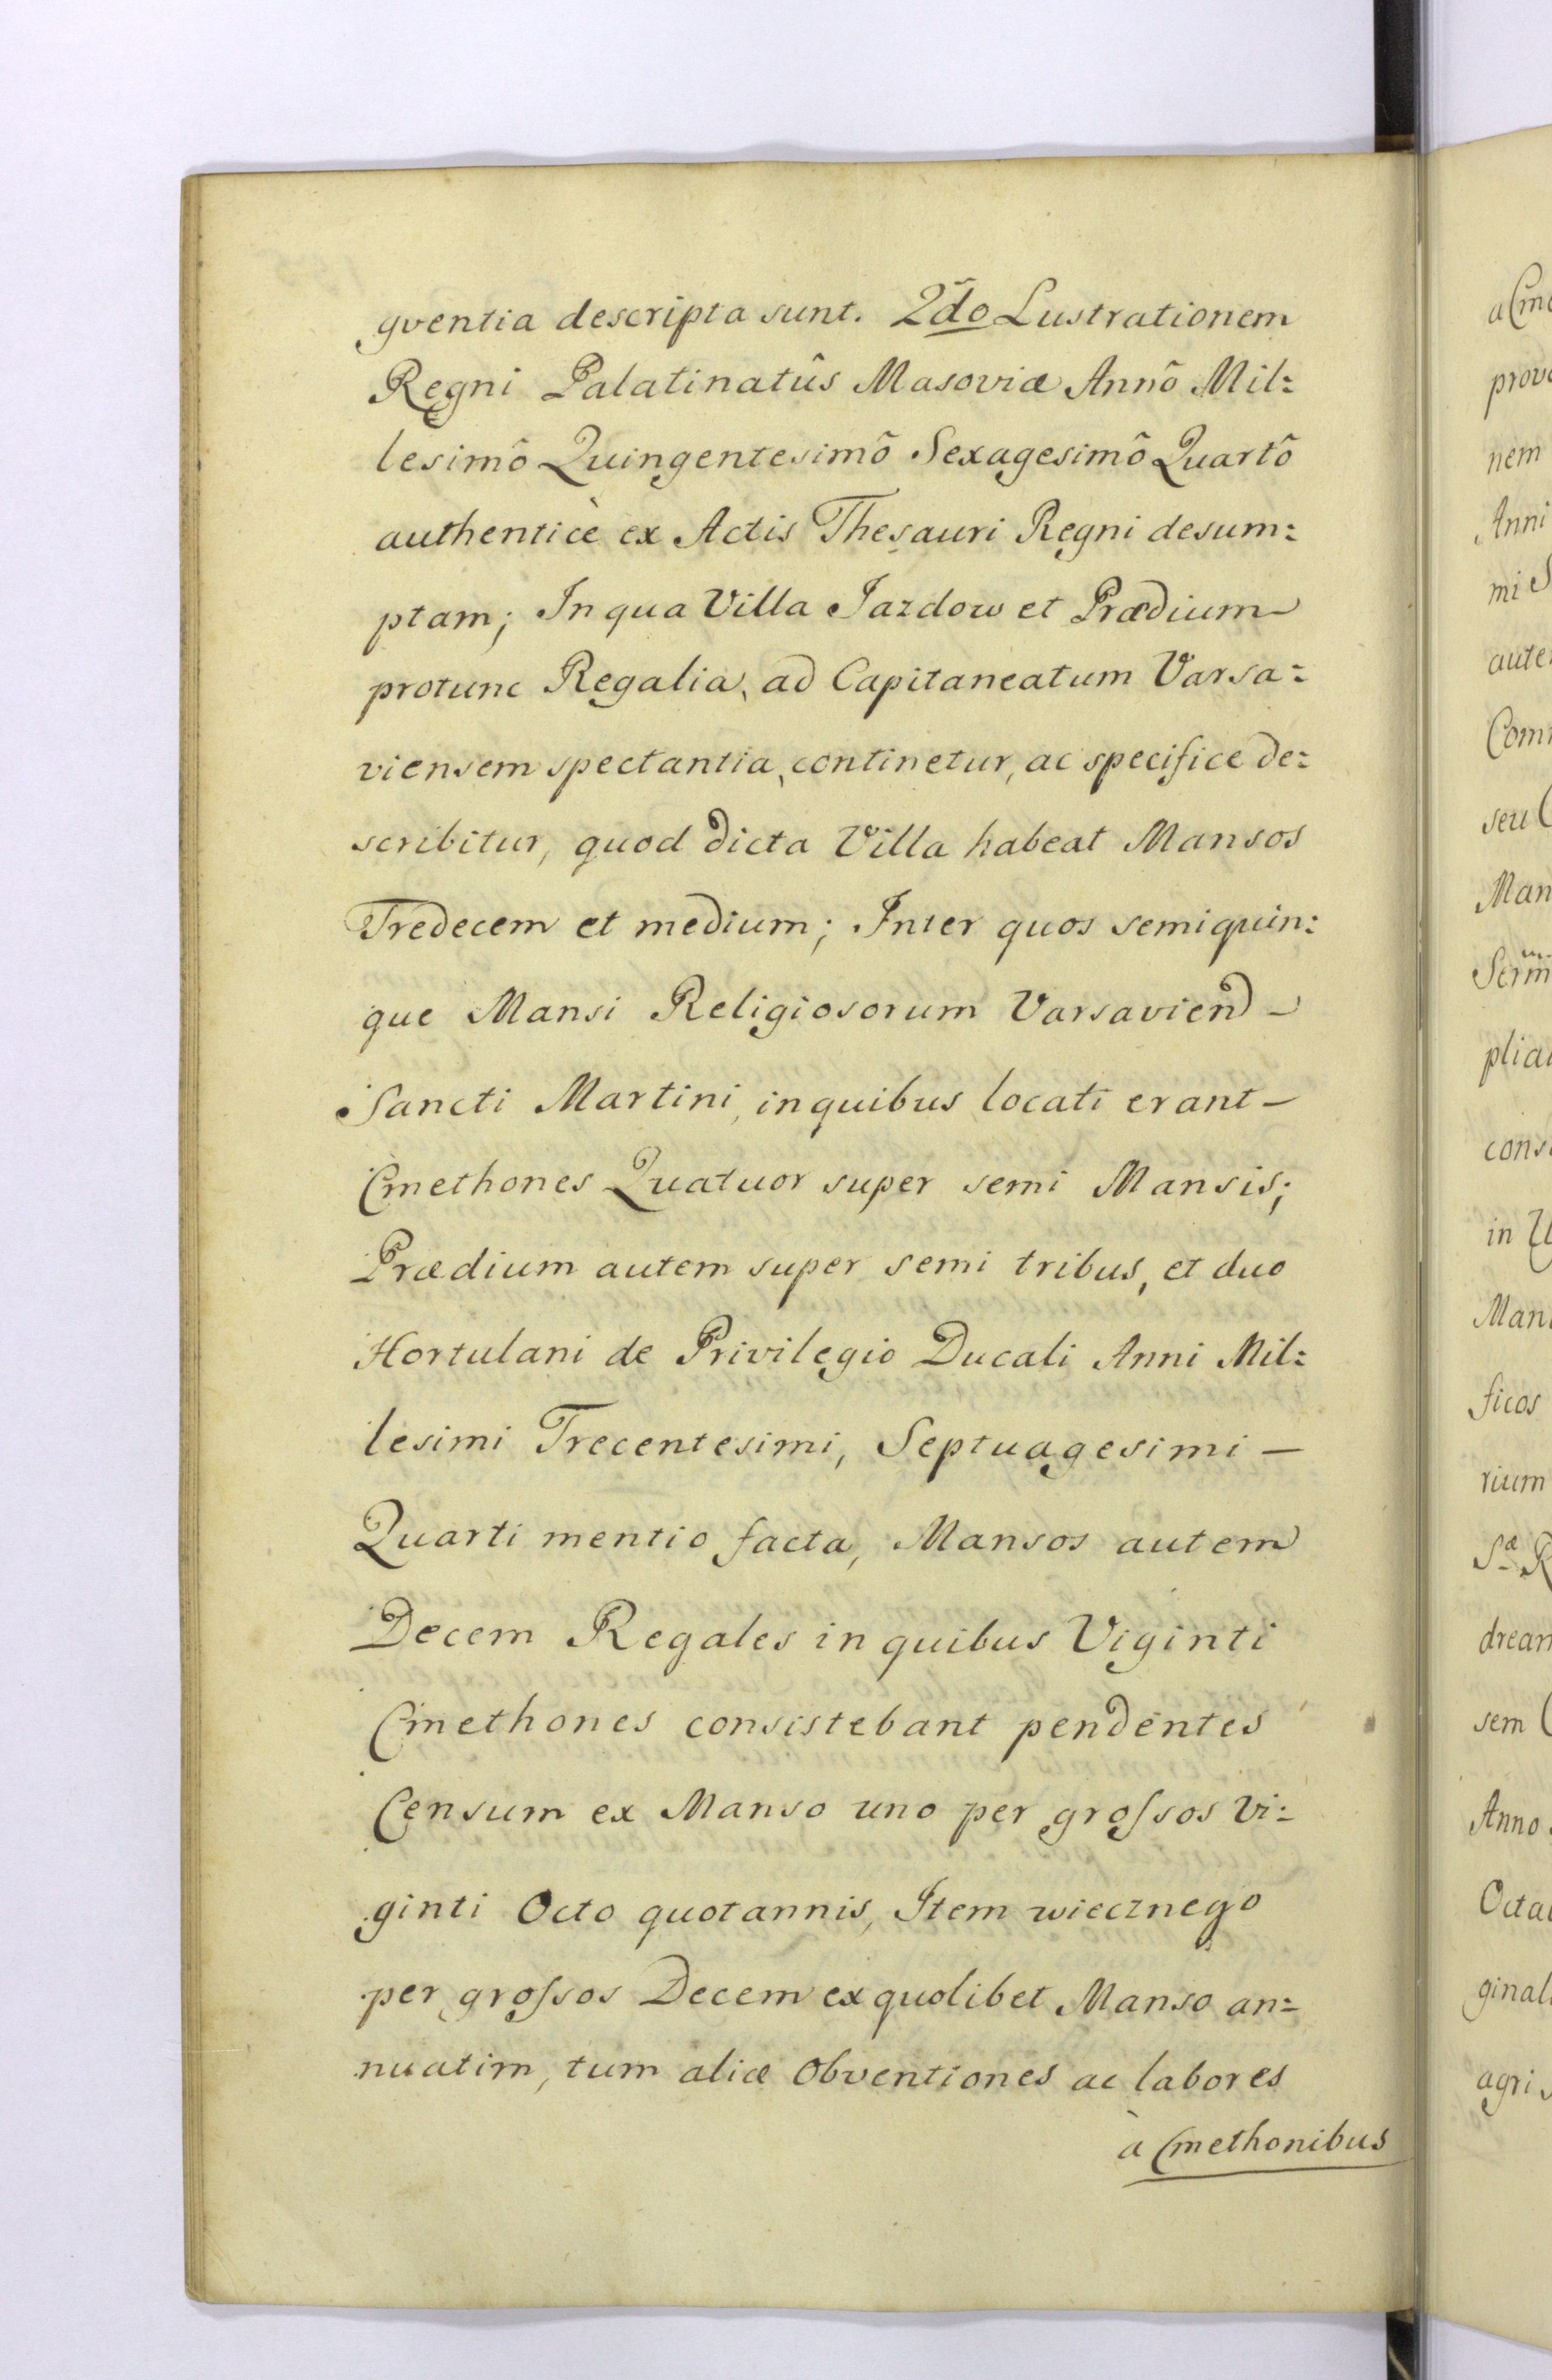 qventia descripta sunt. 2do Lustrationem
Regni Palatinatûs Masoviæ Annô Mil=
lesimô Quingentesimô Sexagesimô Quartô
authenticè ex Actis Thesauri Regni desum=
ptam; In qua Villa Jazdow et Prædium
protunc Regalia, ad Capitaneatum Varsa=
viensem spectantia, continetur, ac specifice de=
scribitur, quod dicta Villa habeat Mansos
Tredecem et medium; Inter quos semiquin=
que Mansi Religiosorum Varsavien –
Sancti Martini, in quibus locati erant –
Cmethones Quatuor super semi Mansis;
Prædium autem super semi tribus, et duo
Hortulani de Privilegio Ducali Anni Mil=
lesimi Trecentesimi, Septuagesimi –
Quarti mentio facta, Mansos autem
Decem Regales in quibus Viginti
Cmethones consistebant pendentes
Censum ex Manso uno per groſsos Vi=
ginti Octo quotannis, Item wiecznego
per groſsos Decem ex quolibet Manso an=
nuatim, tum aliæ Obventiones ac labores
à Cmethonibus
a Cme
prove
nem
Anni
mi S
aute
Com
seu C
Man
Serm
plia
cons
in U
Man
ficos
rium
Sæ R
drean
sem C
Anno
Octa
ginal
agri